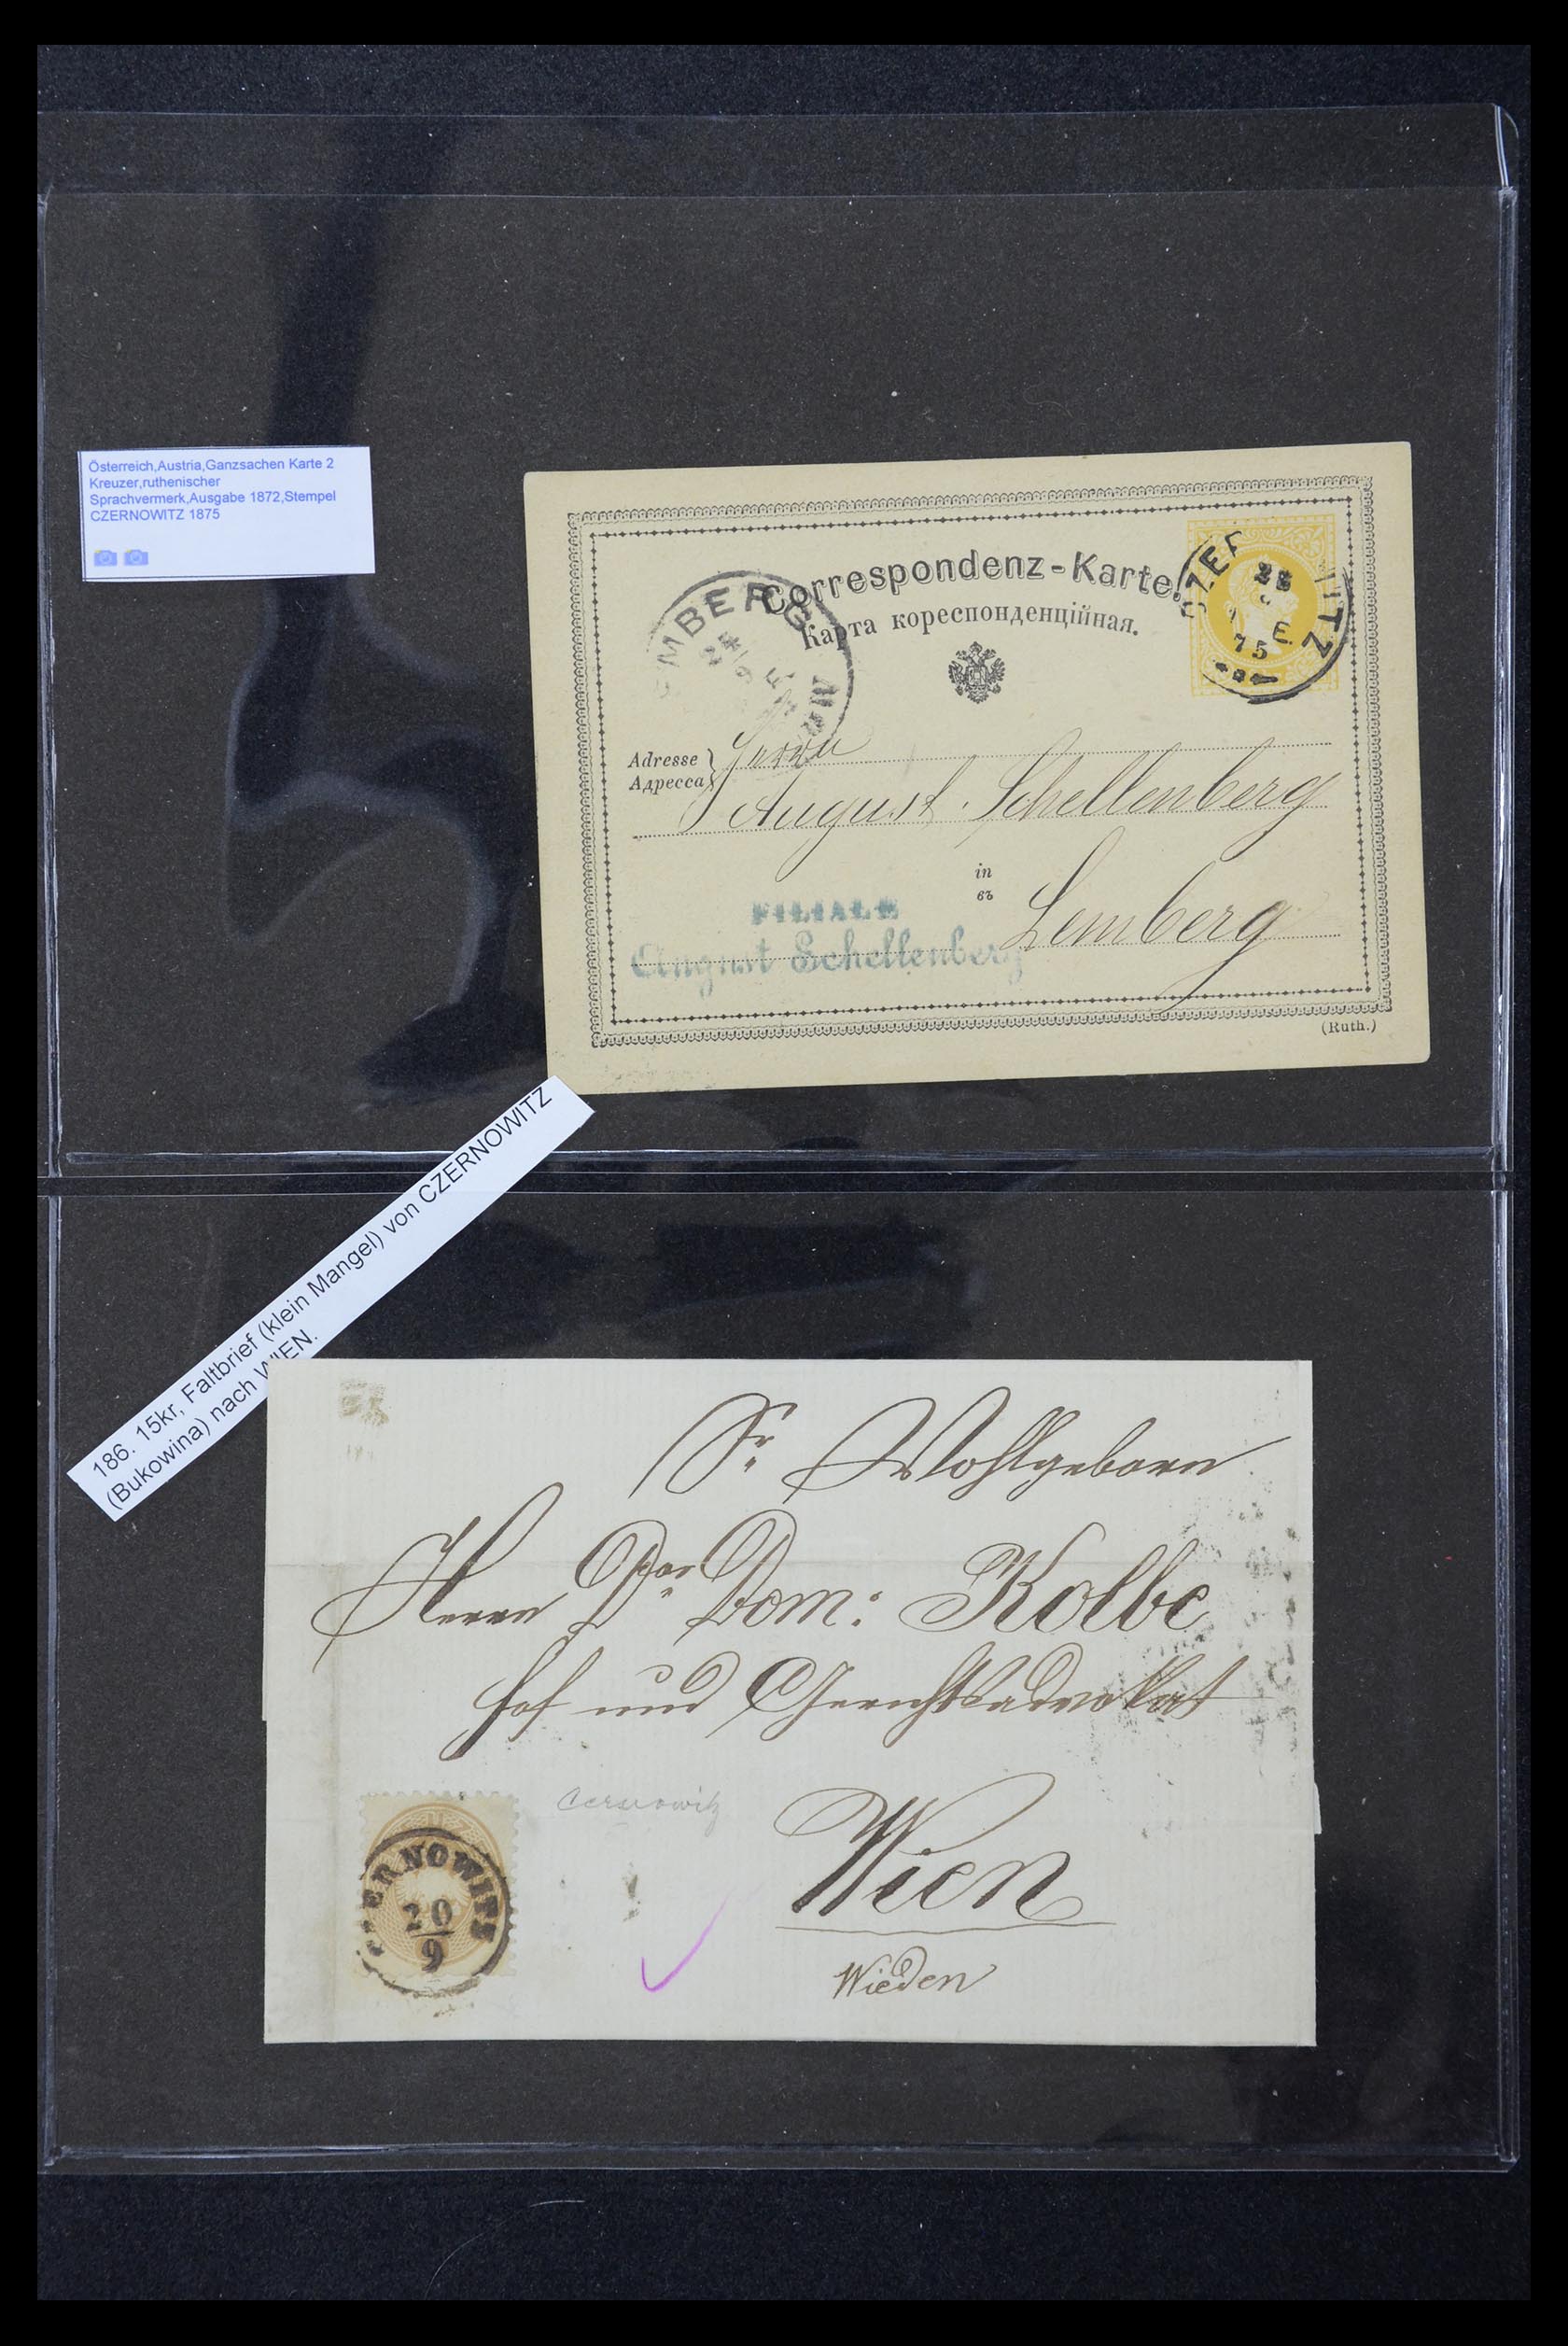 Österreich,Austria,Ganzsachen Karte 2
Kreuzer,ruthenischer
Sprachvermerk,Ausgabe 1872,Stempel
CZERNOWITZ 1875
Correspondenz-Karte.
Карта кореспонденційная.
EMBERG
24
9
E.
CZER ITZ
E.
75
Adresse
Адресса
Herrn
August Schellenberg
in
въ
Lemberg
FILIALE
August Schellenberg
(Ruth.)
186. 15kr, Faltbrief (klein Mangel) von CZERNOWITZ
(Bukowina) nach WIEN.
Sr. Wohlgeborn
Herrn Dor. Dom: Kolbe
Hof und Gerichtsadvokat
Wien
Wieden
Cernowitz
ERNOWITZ
20
9